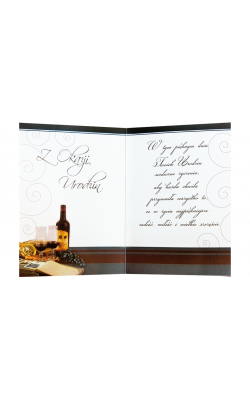 Z Okazji
Urodzin
W tym pięknym dniu
Twoich Urodzin
serdeczne życzenia,
aby każda chwila
przyniosła wszystko to,
co w życiu najpiękniejsze
radość, miłość i wielkie szczęście